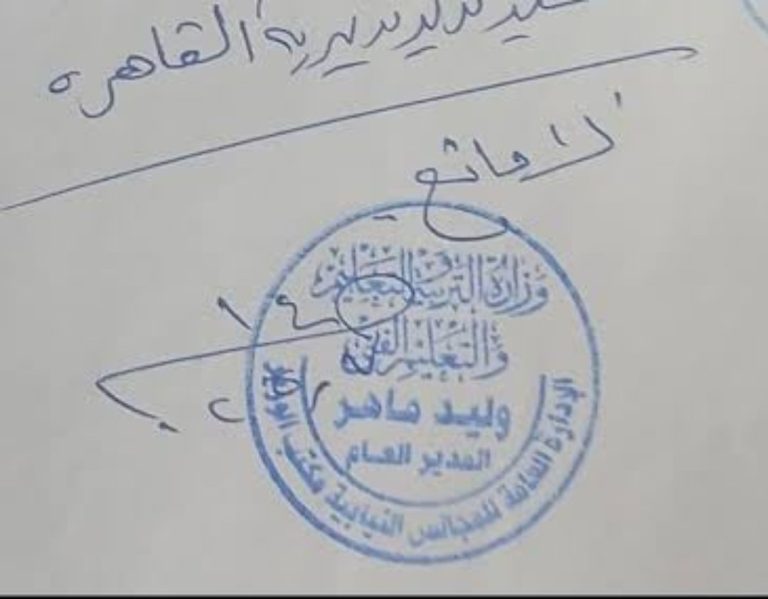 مديرية القاهرة
لا مانع
وزارة التربية والتعليم
والتعليم الفني
وليد ماهر
المدير العام
الإدارة العامة للمجالس النيابية مكتب الوزير